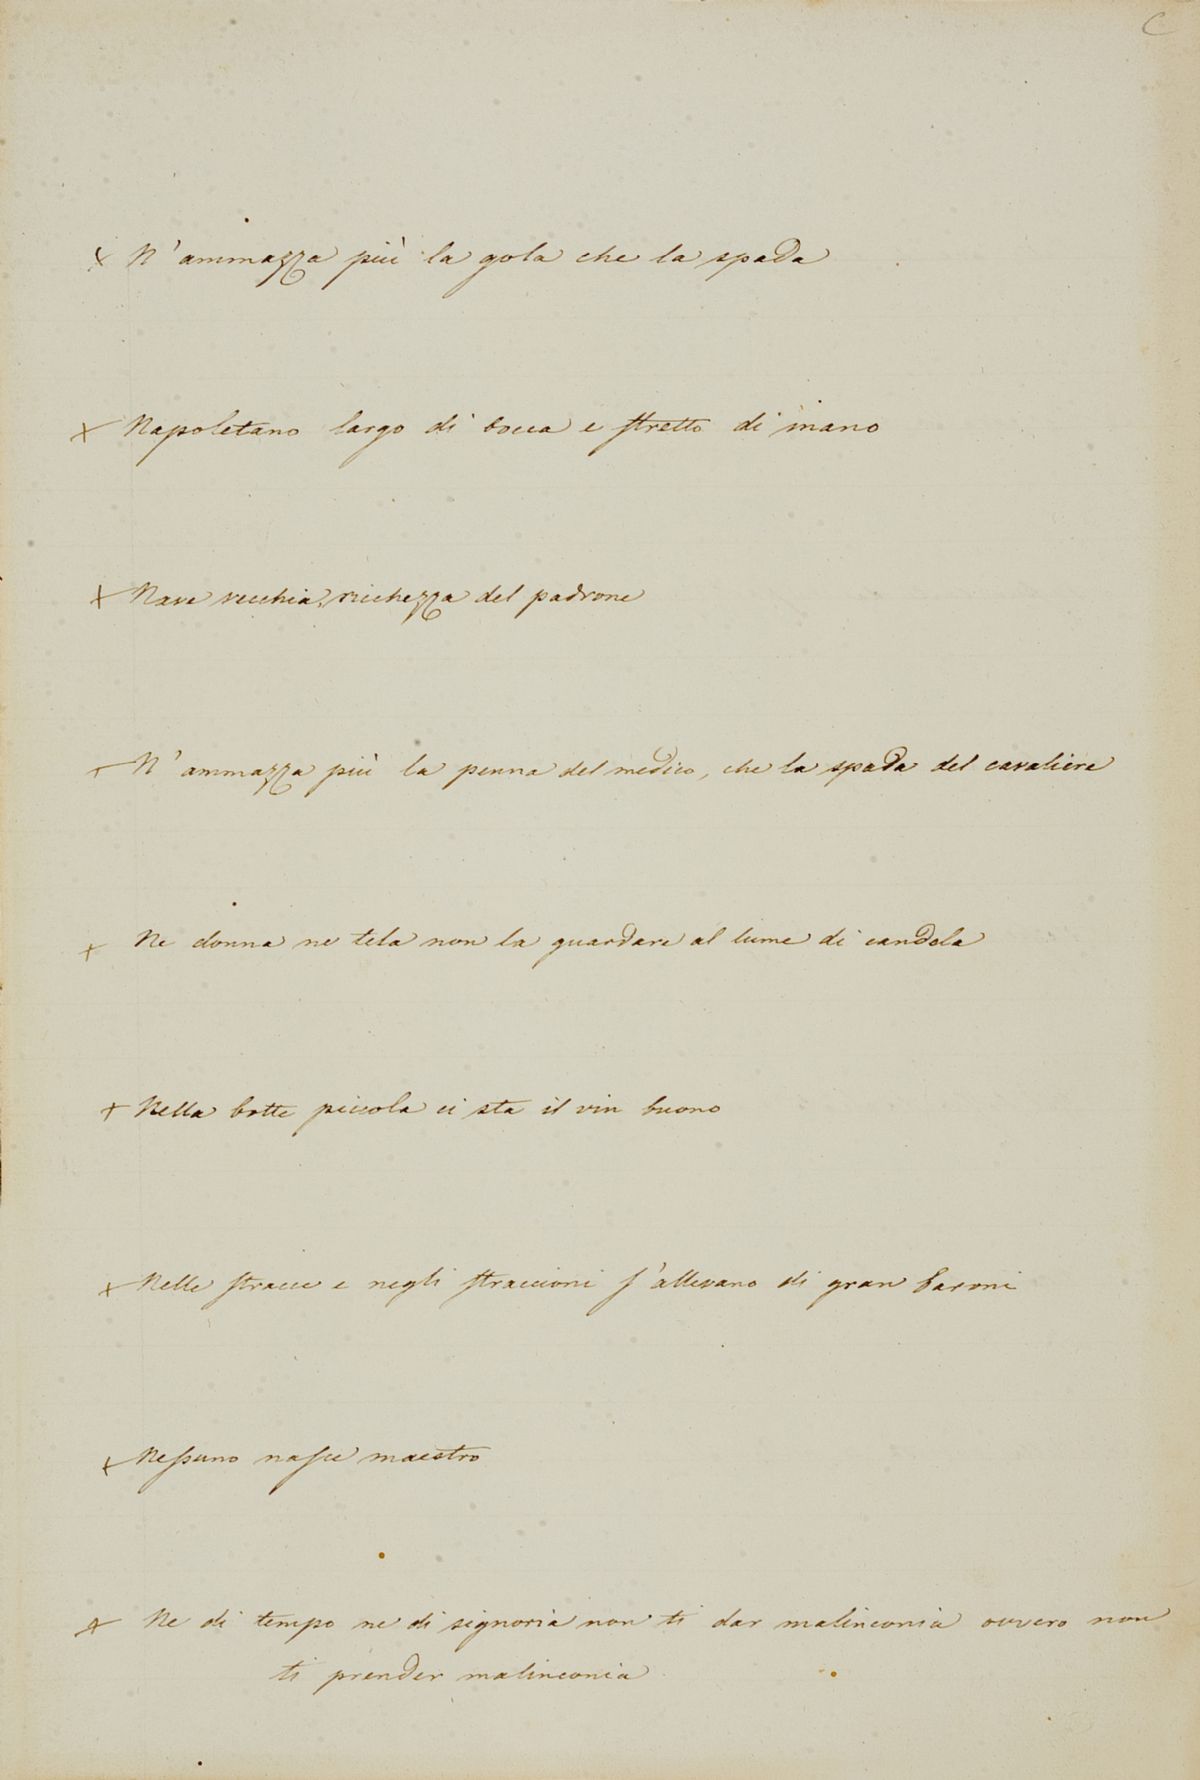 C
+ N'ammazza più la gola che la spada
+ Napoletano largo di bocca e stretto di mano
+ Nave vecchia, ricchezza del padrone
+ N'ammazza più la penna del medico, che la spada del cavaliere
+ Ne donna ne tela non la guardare al lume di candela
+ Nella botte piccola ci sta il vin buono
+ Nelle stracce e negli straccioni s'allevano di gran baroni
+ Nessuno nasce maestro
+ Ne di tempo ne di signoria non ti dar malinconia ovvero non
ti prender malinconia